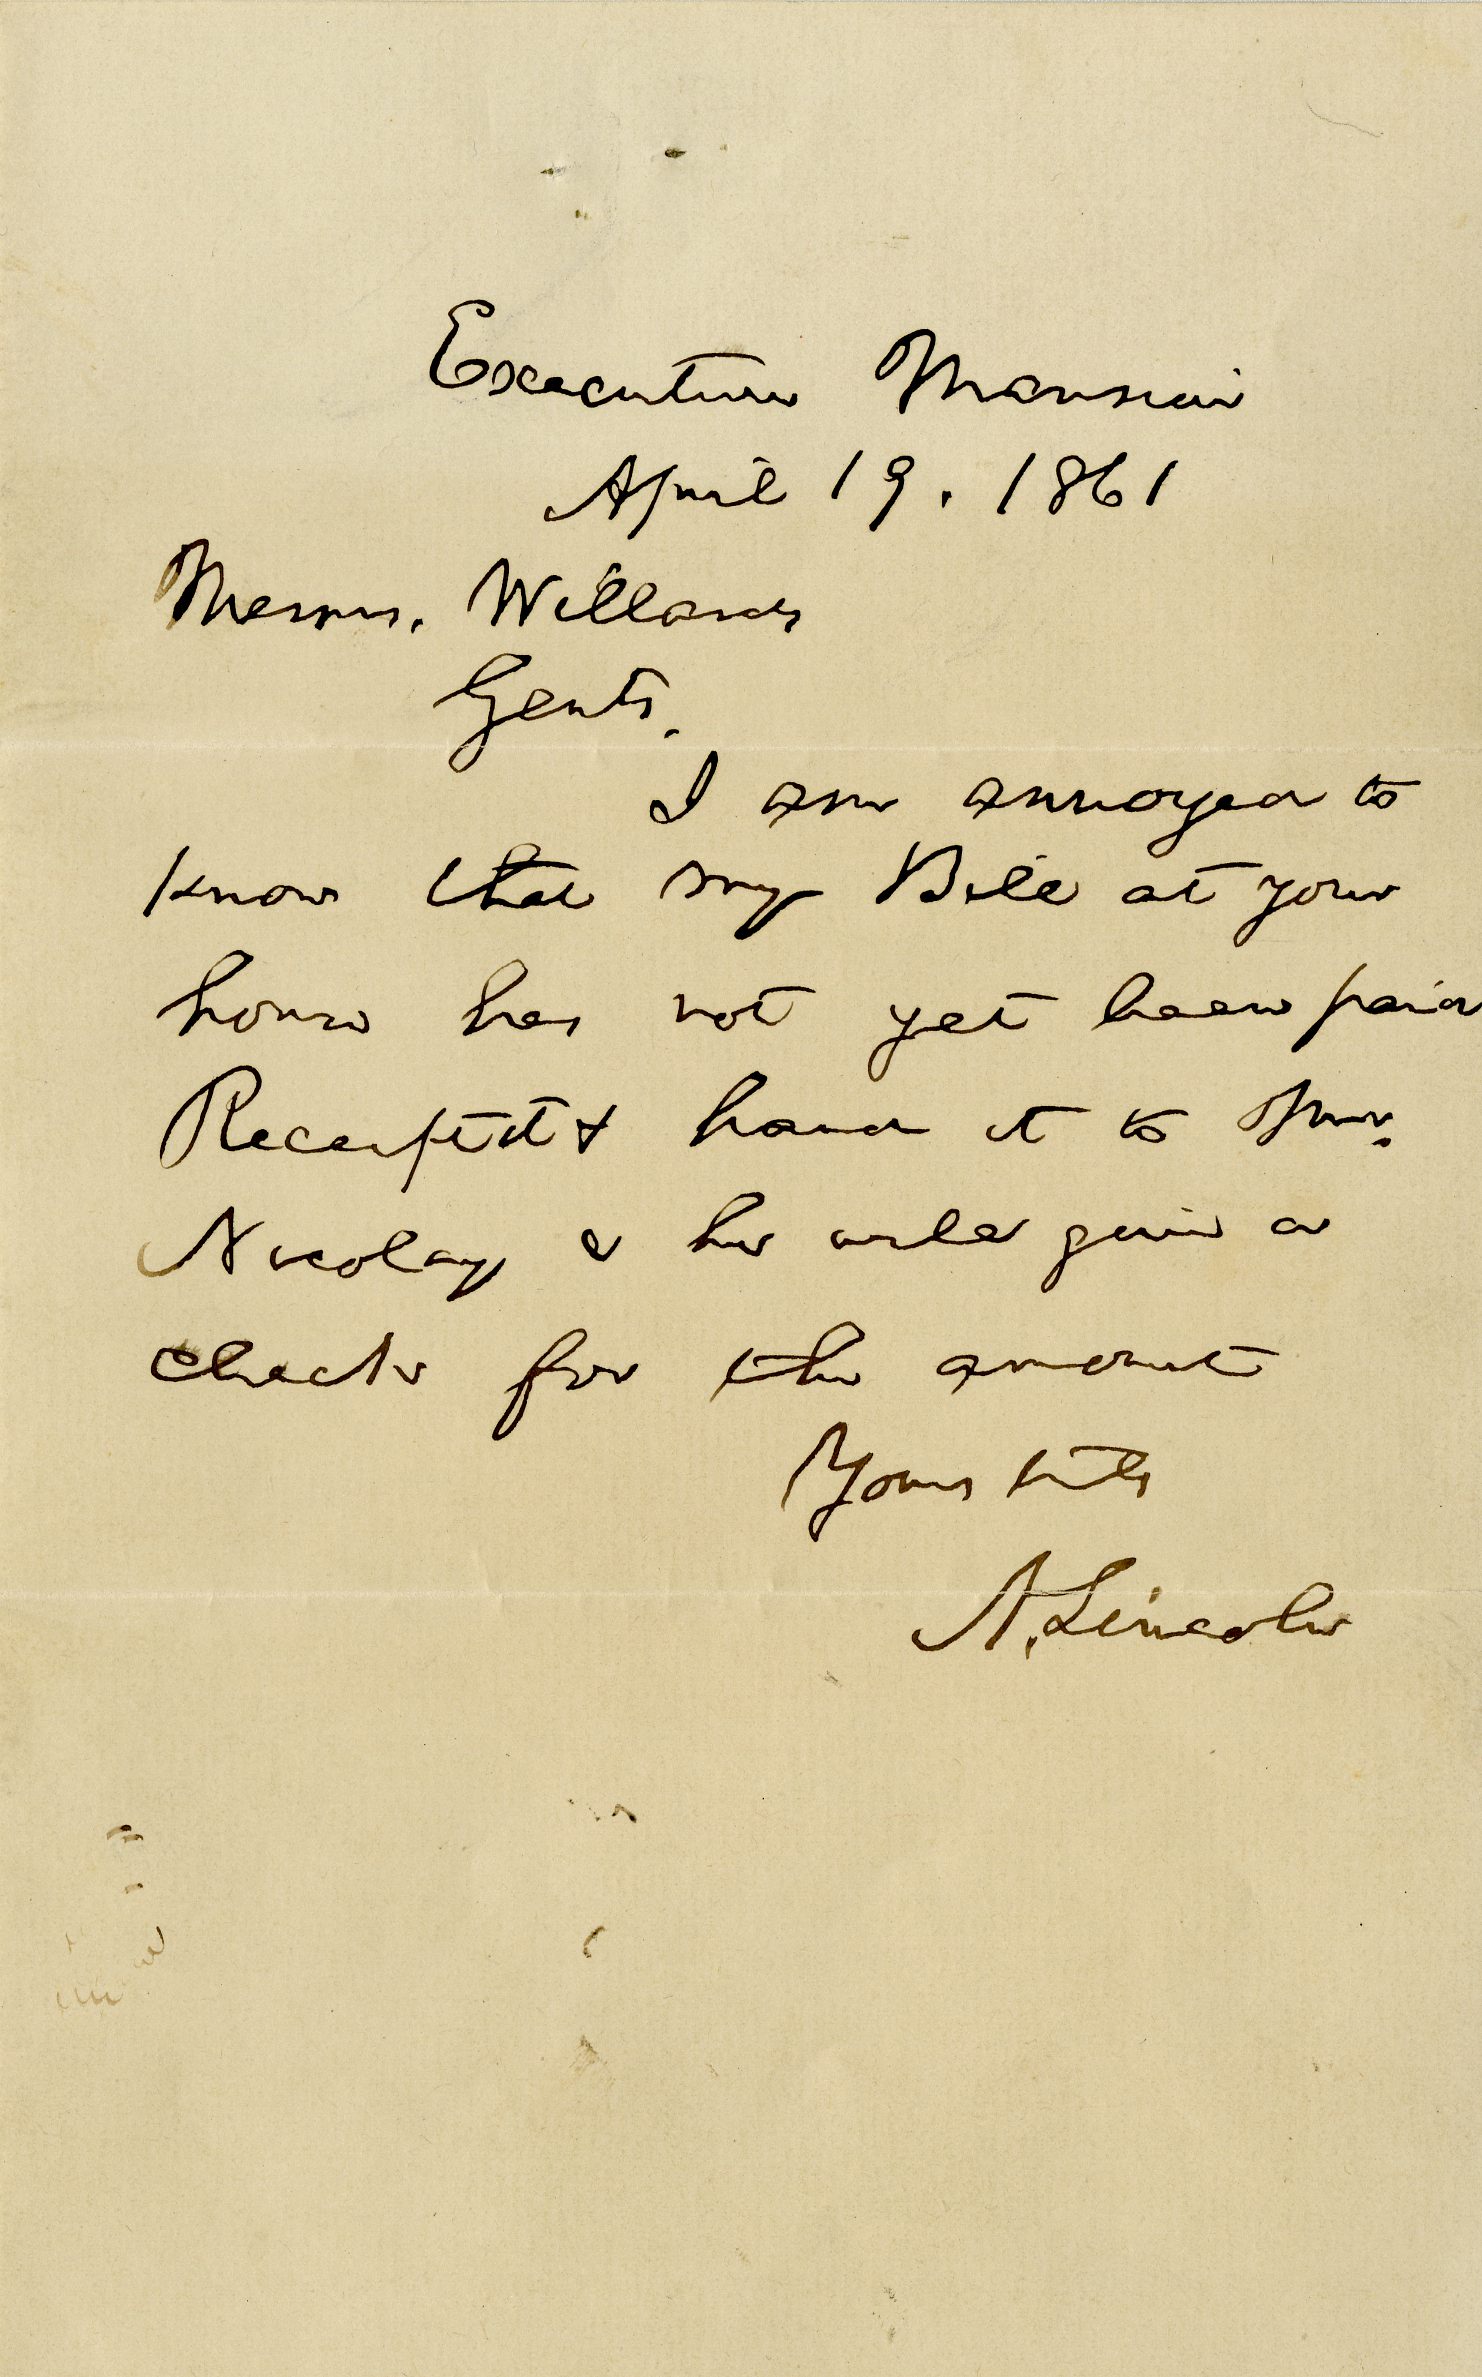 Executive Mansion
April 19. 1861
Messrs. Willards
Gents.
I am annoyed to
know that my Bill at your
house has not yet been paid
Receipt it & hand it to Mr.
Nicolay & he will give a
check for the amount
Yours truly
A. Lincoln